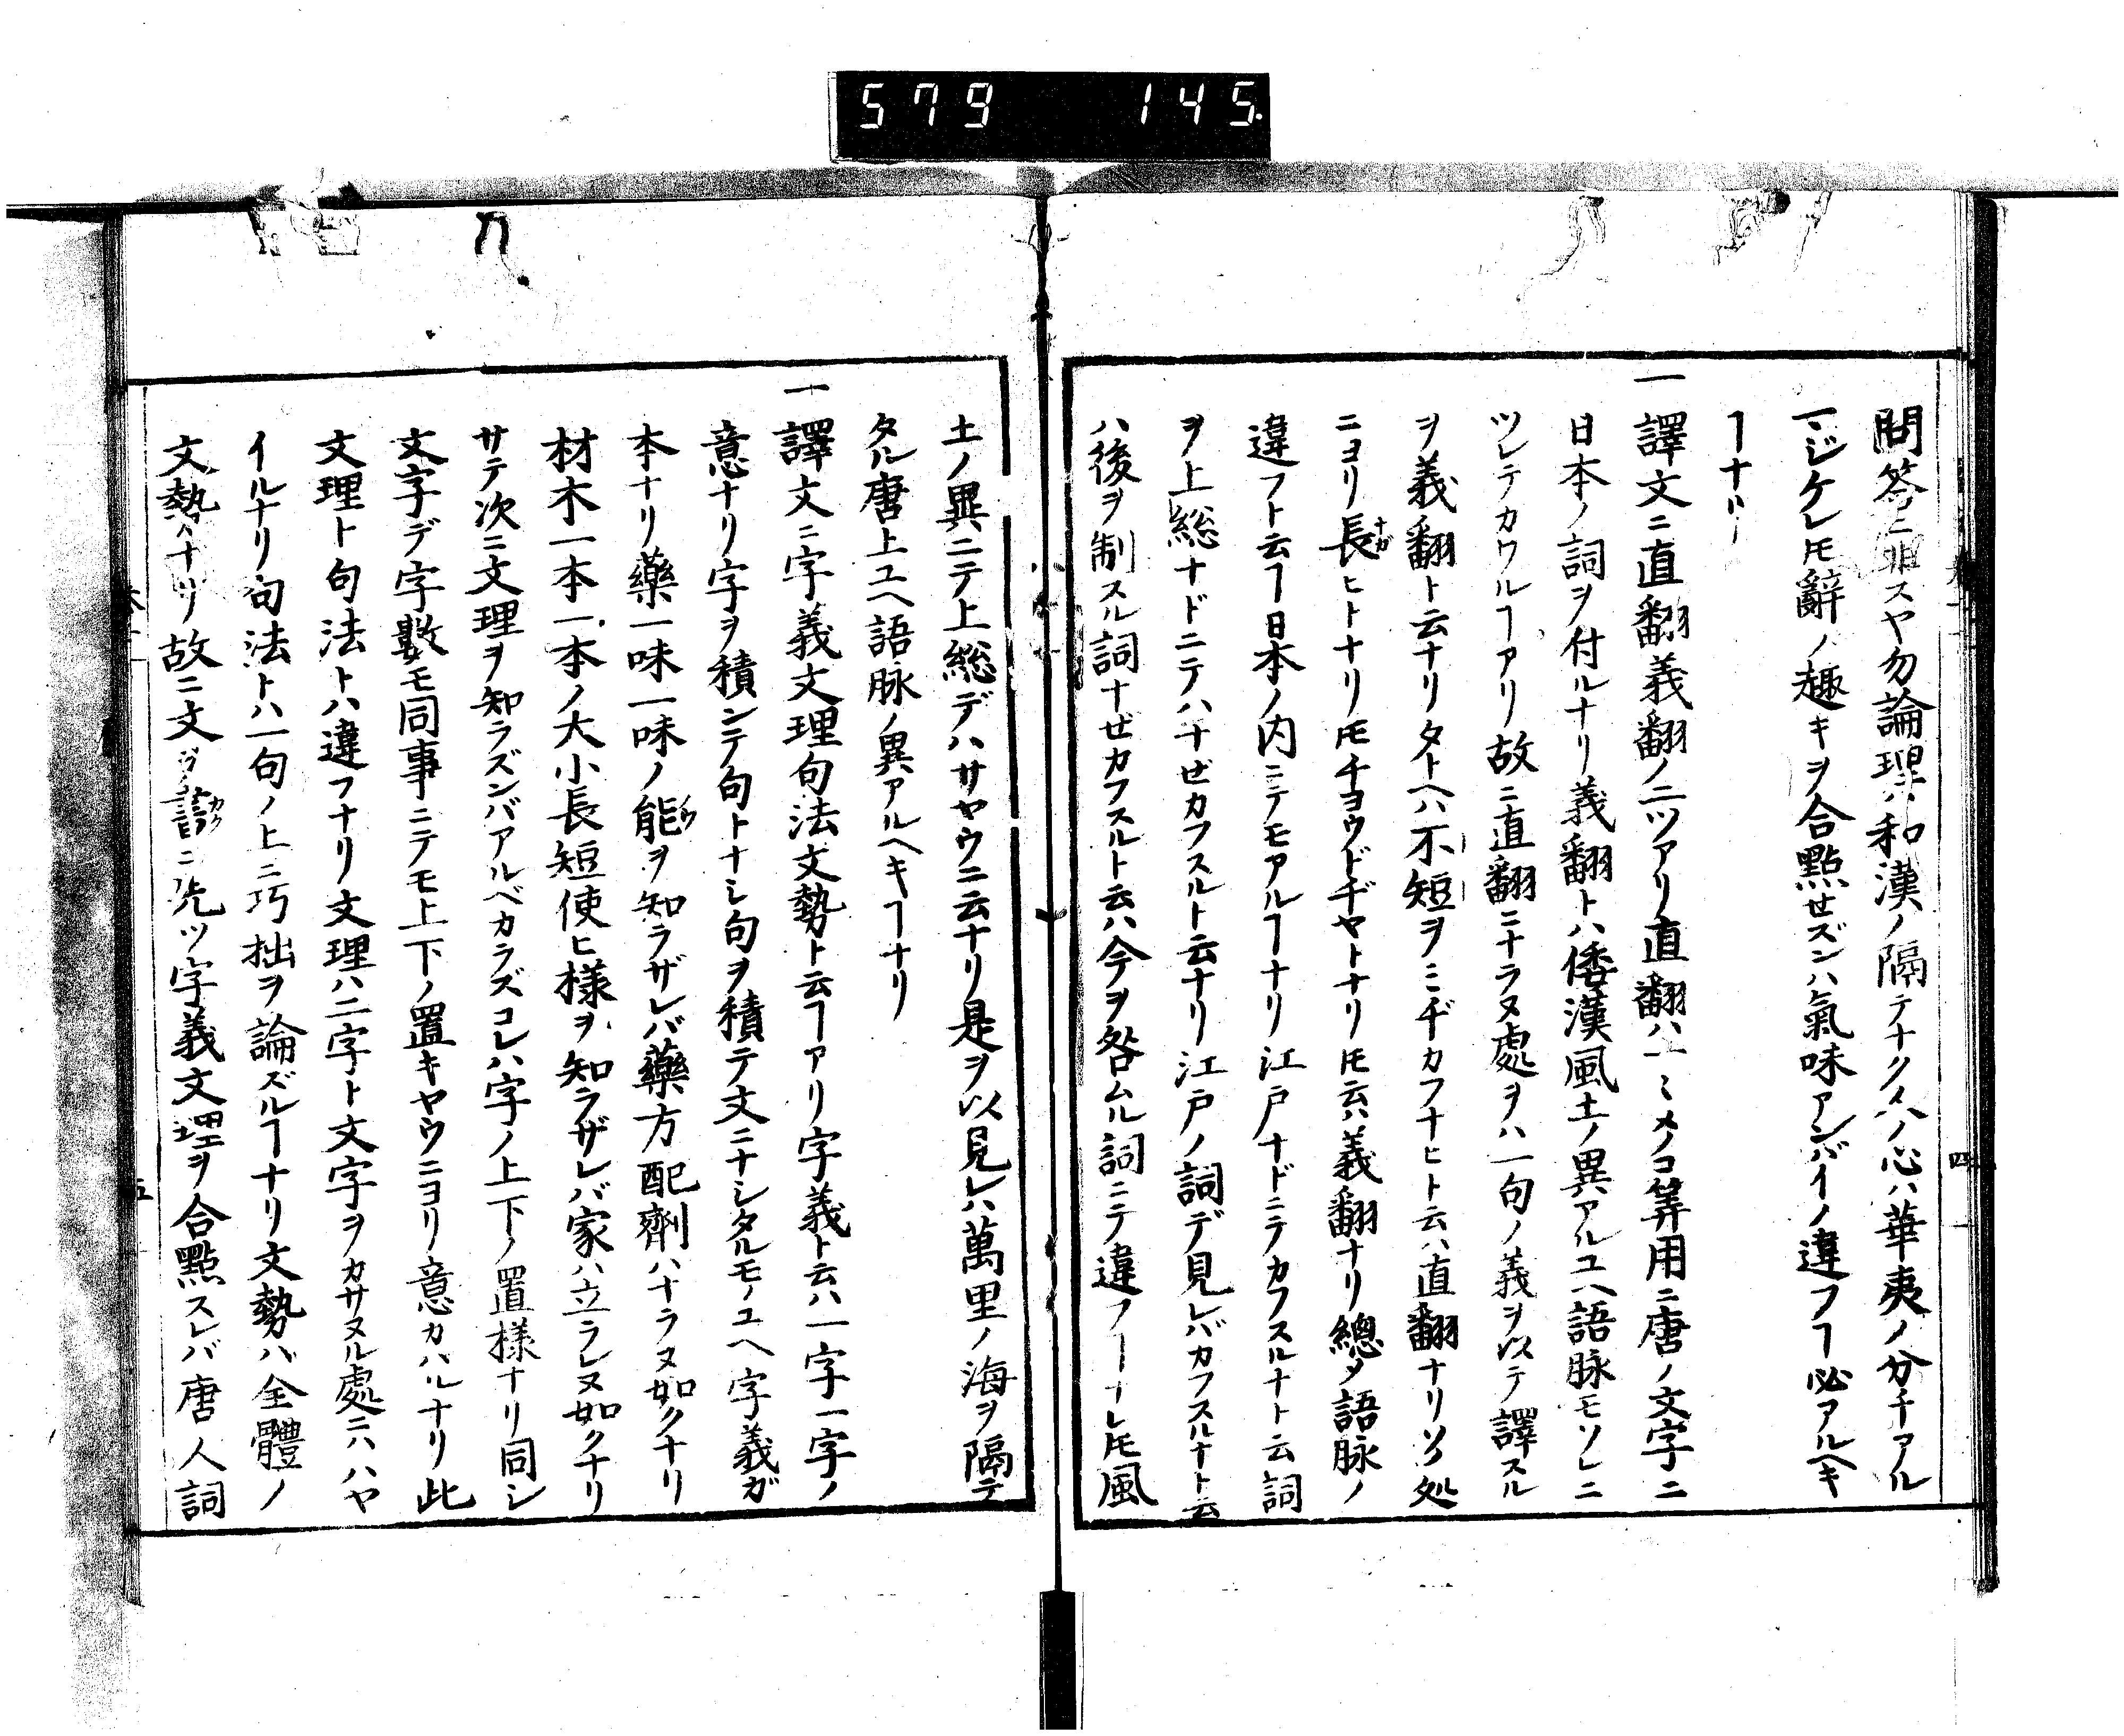 579 145
問答ニ非スヤ勿論理ハ和漢ノ隔テナク人ノ心ハ華夷ノ分チアル
マジケレ𪜈辭ノ趣キヲ合點セズンハ氣味アンバイノ違フヿ必アルヘキ
ヿナリ
一譯文ニ直翻義翻ノ二ツアリ直翻ハ一〻メノコ筭用ニ唐ノ文字ニ
日本ノ詞ヲ付ルナリ義翻トハ倭漢風土ノ異アルユヘ語脉モソレニ
ツレテカワルヿアリ故ニ直翻ニナラヌ處ヲハ一句ノ義ヲ以テ譯スル
ヲ義翻ト云ナリタトヘハ不短ヲミヂカフナヒト云ハ直翻ナリソノ処
ニヨリ長ナガヒトナリ𪜈チヨウドヂヤトナリ𪜈云ハ義翻ナリ總メ語脉ノ
違フト云ヿ日本ノ内ニテモアルヿナリ江戸ナドニテカフスルナト云詞
ヲ上総ナドニテハナゼカフスルト云ナリ江戸ノ詞デ見レバカフスルナト云
ハ後ヲ制スル詞ナゼカフスルト云ハ今ヲ咎ムル詞ニテ違フヿナレ𪜈風
四
土ノ異ニテ上総デハサヤウニ云ナリ是ヲ以見レハ萬里ノ海ヲ隔テ
タル唐土ユヘ語脉ノ異アルヘキヿナリ
一譯文ニ字義文理句法文勢ト云ヿアリ字義ト云ハ一字一字ノ
意ナリ字ヲ積ンテ句トナシ句ヲ積テ文ニナシタルモノユヘ字義ガ
本ナリ藥一味一味ノ能ノウヲ知ラザレバ藥方配劑ハナラヌ如クナリ
材木一本一本ノ大小長短使ヒ様ヲ知ラザレバ家ハ立ラレヌ如クナリ
サテ次ニ文理ヲ知ラズンバアルベカラズコレハ字ノ上下ノ置様ナリ同シ
文字デ字數モ同事ニテモ上下ノ置キヤウニヨリ意カハルナリ此
文理ト句法トハ違フナリ文理ハ二字ト文字ヲカサヌル處ニハハヤ
イルナリ句法トハ一句ノ上ニ巧拙ヲ論ズルヿナリ文勢ハ全體ノ
文勢ナリ故ニ文ヲ書カクニ先ツ字義文理ヲ合點スレバ唐人詞
五